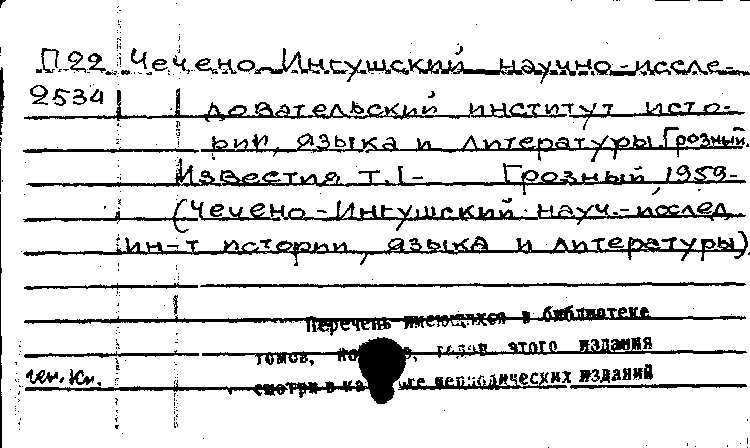 П22 Чечено-Ингушский научно-иссле-
2534 довательский институт исто-
рии, языка и литературы. Грозный.
Известия Т.I- Грозный 1959-
(Чечено-Ингушский науч.-исслед.
ин-т истории, языка и литературы)
Перечень имеющихся в библиотеке
томов, годов этого издания
смотри в периодических изданий
ген. кн.